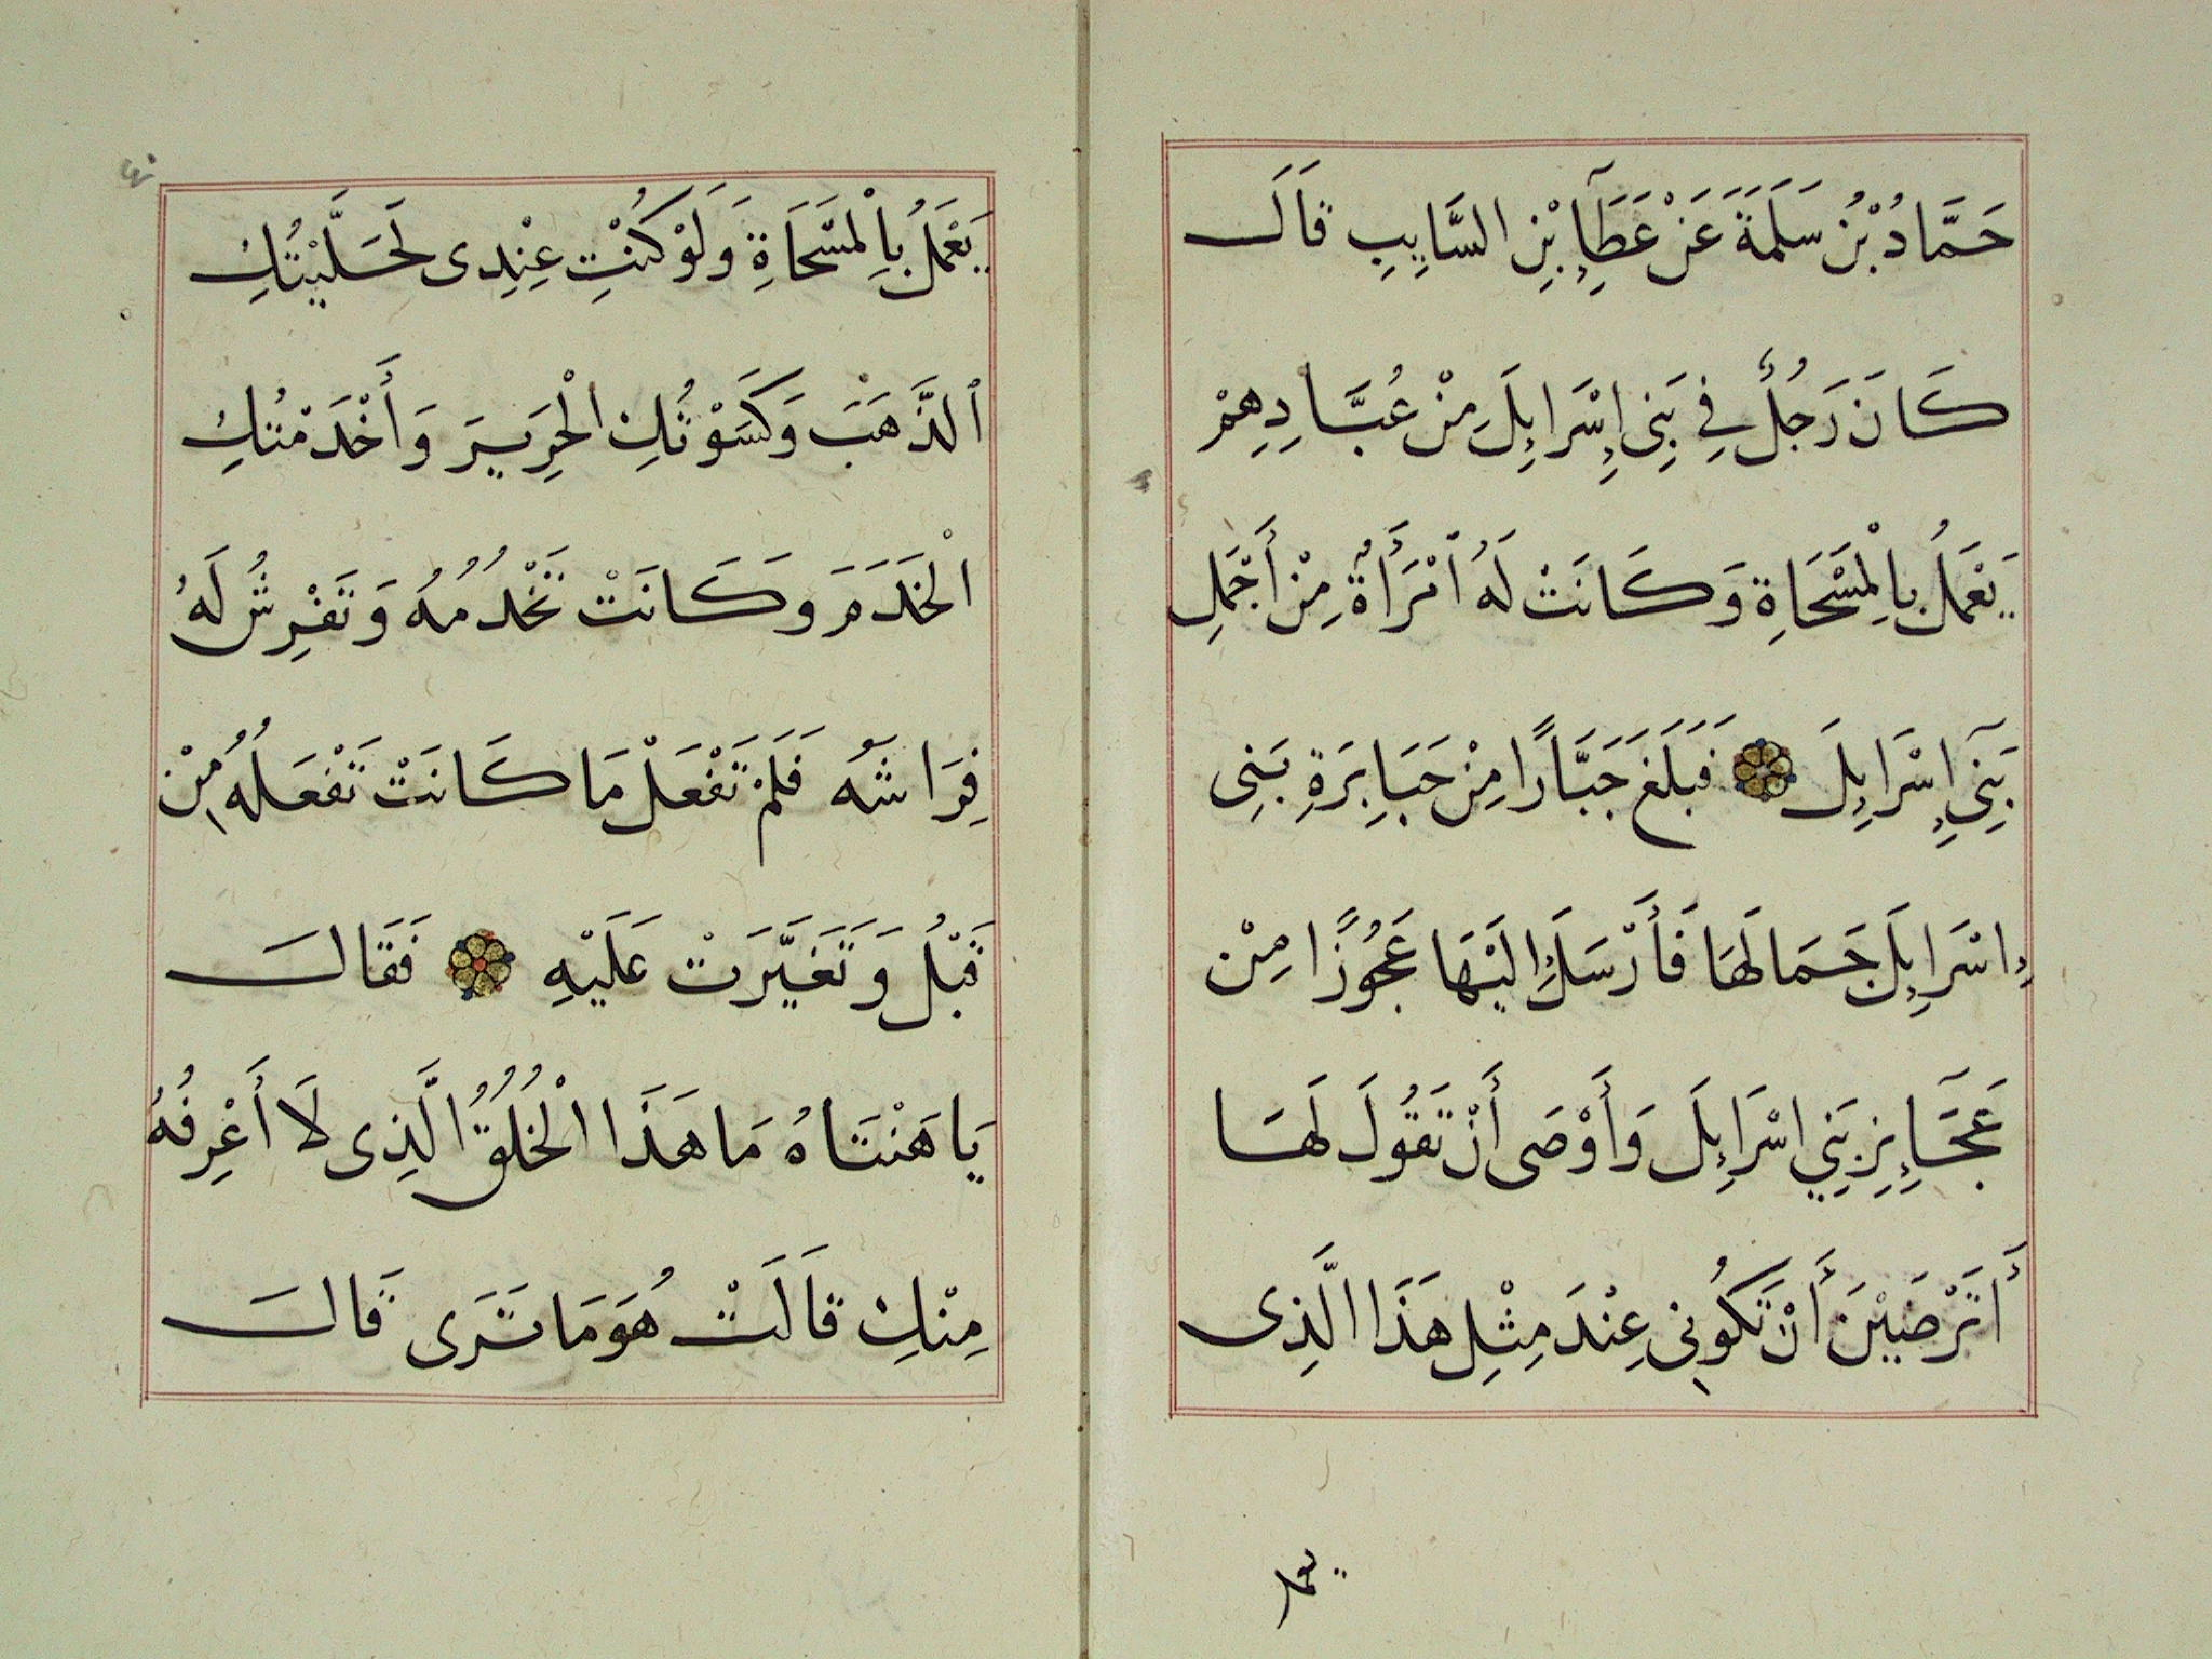 حَمَّادُ بْنُ سَلَمَةَ عَنْ عَطَآءِ بْنِ السَّايِبِ قَالَ
كَانَ رَجُلٌ فِي بَنِى إِسْرَايِلَ مِنْ عُبَّادِهِمْ
يَعْمَلُ بِالْمَسْحَاةِ وَكَانَتْ لَهُ امْرَأَةٌ مِنْ أَجْمَلِ
بَنِي إِسْرَايِلَ فَبَلَغَ جَبَّارًا مِنْ جَبَابِرَةِ بَنِى
إِسْرَايِلَ جَمَالَهَا فَأَرْسَلَ إِلَيْهَا عَجُوزًا مِنْ
عَجَآيِزِ بَنِي اسْرَايِلَ وَأَوْصَى أَنْ تَقُولَ لَهَا
أَتَرْضَيْنَ أَنْ تَكُونِى عِنْدَ مِثْلِ هَذَا الَّذِى
يعمل
يَعْمَلُ بِالْمَسْحَاةِ وَلَوْ كُنْتِ عِنْدِى لَحَلَّيْتُكِ
ٱلذَّهَبَ وَكَسَوْتُكِ الْحَرِيرَ وَأَخْدَمْتُكِ
الْخَدَمَ وَكَانَتْ تَخْدُمُهُ وَتَفْرِشُ لَهُ
فِرَاشَهُ فَلَمْ تَفْعَلْ مَا كَانَتْ تَفْعَلُهُ مِنْ
قَبْلُ وَتَغَيَّرَتْ عَلَيْهِ فَقَالَ
يَا هَنْتَاهُ مَا هَذَا الْخُلُقُ الَّذِى لَا أَعْرِفُهُ
مِنْكِ قَالَتْ هُوَ مَا تَرَى قَالَ